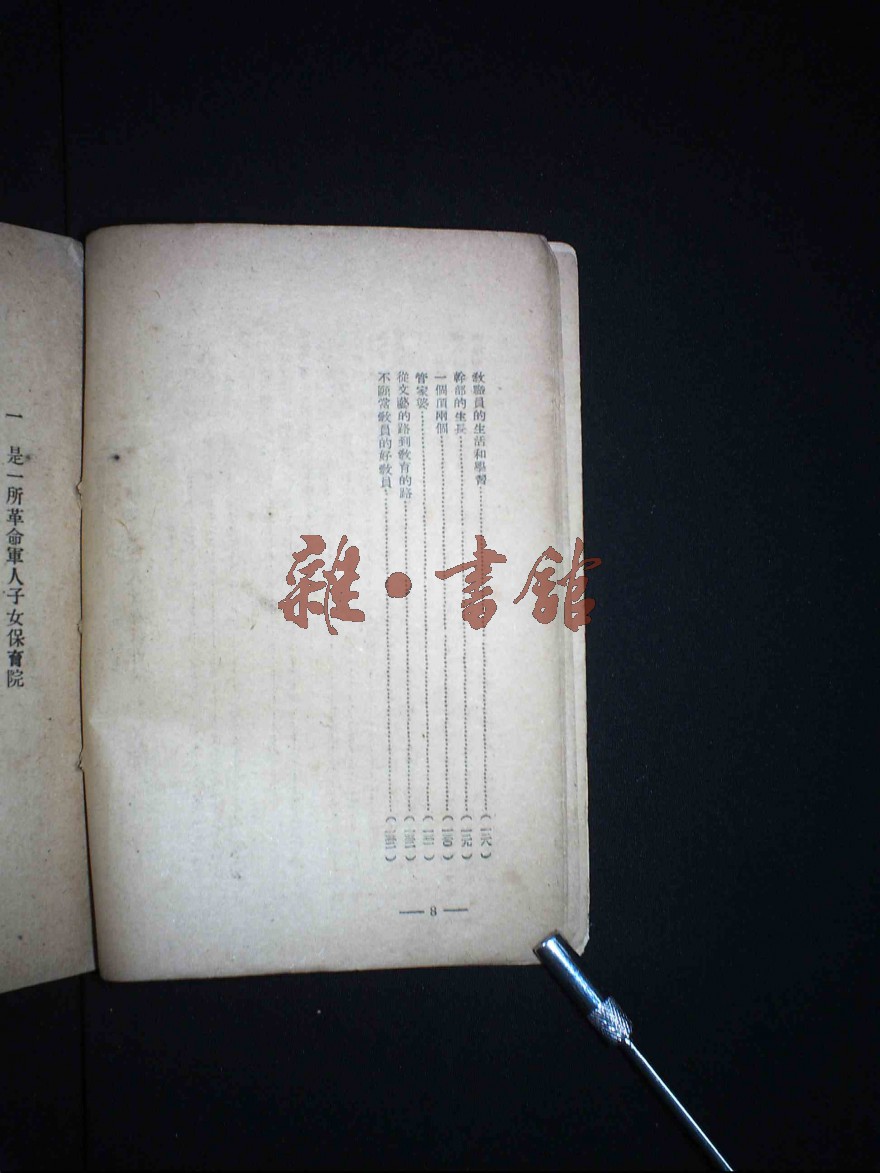 教職員的生活和學習
幹部的生長
一個頂兩個
管家婆
從文藝的路到教育的路
不願當教員的好教員
— 8 —
一 是一所革命軍人子女保育院
雜·書館